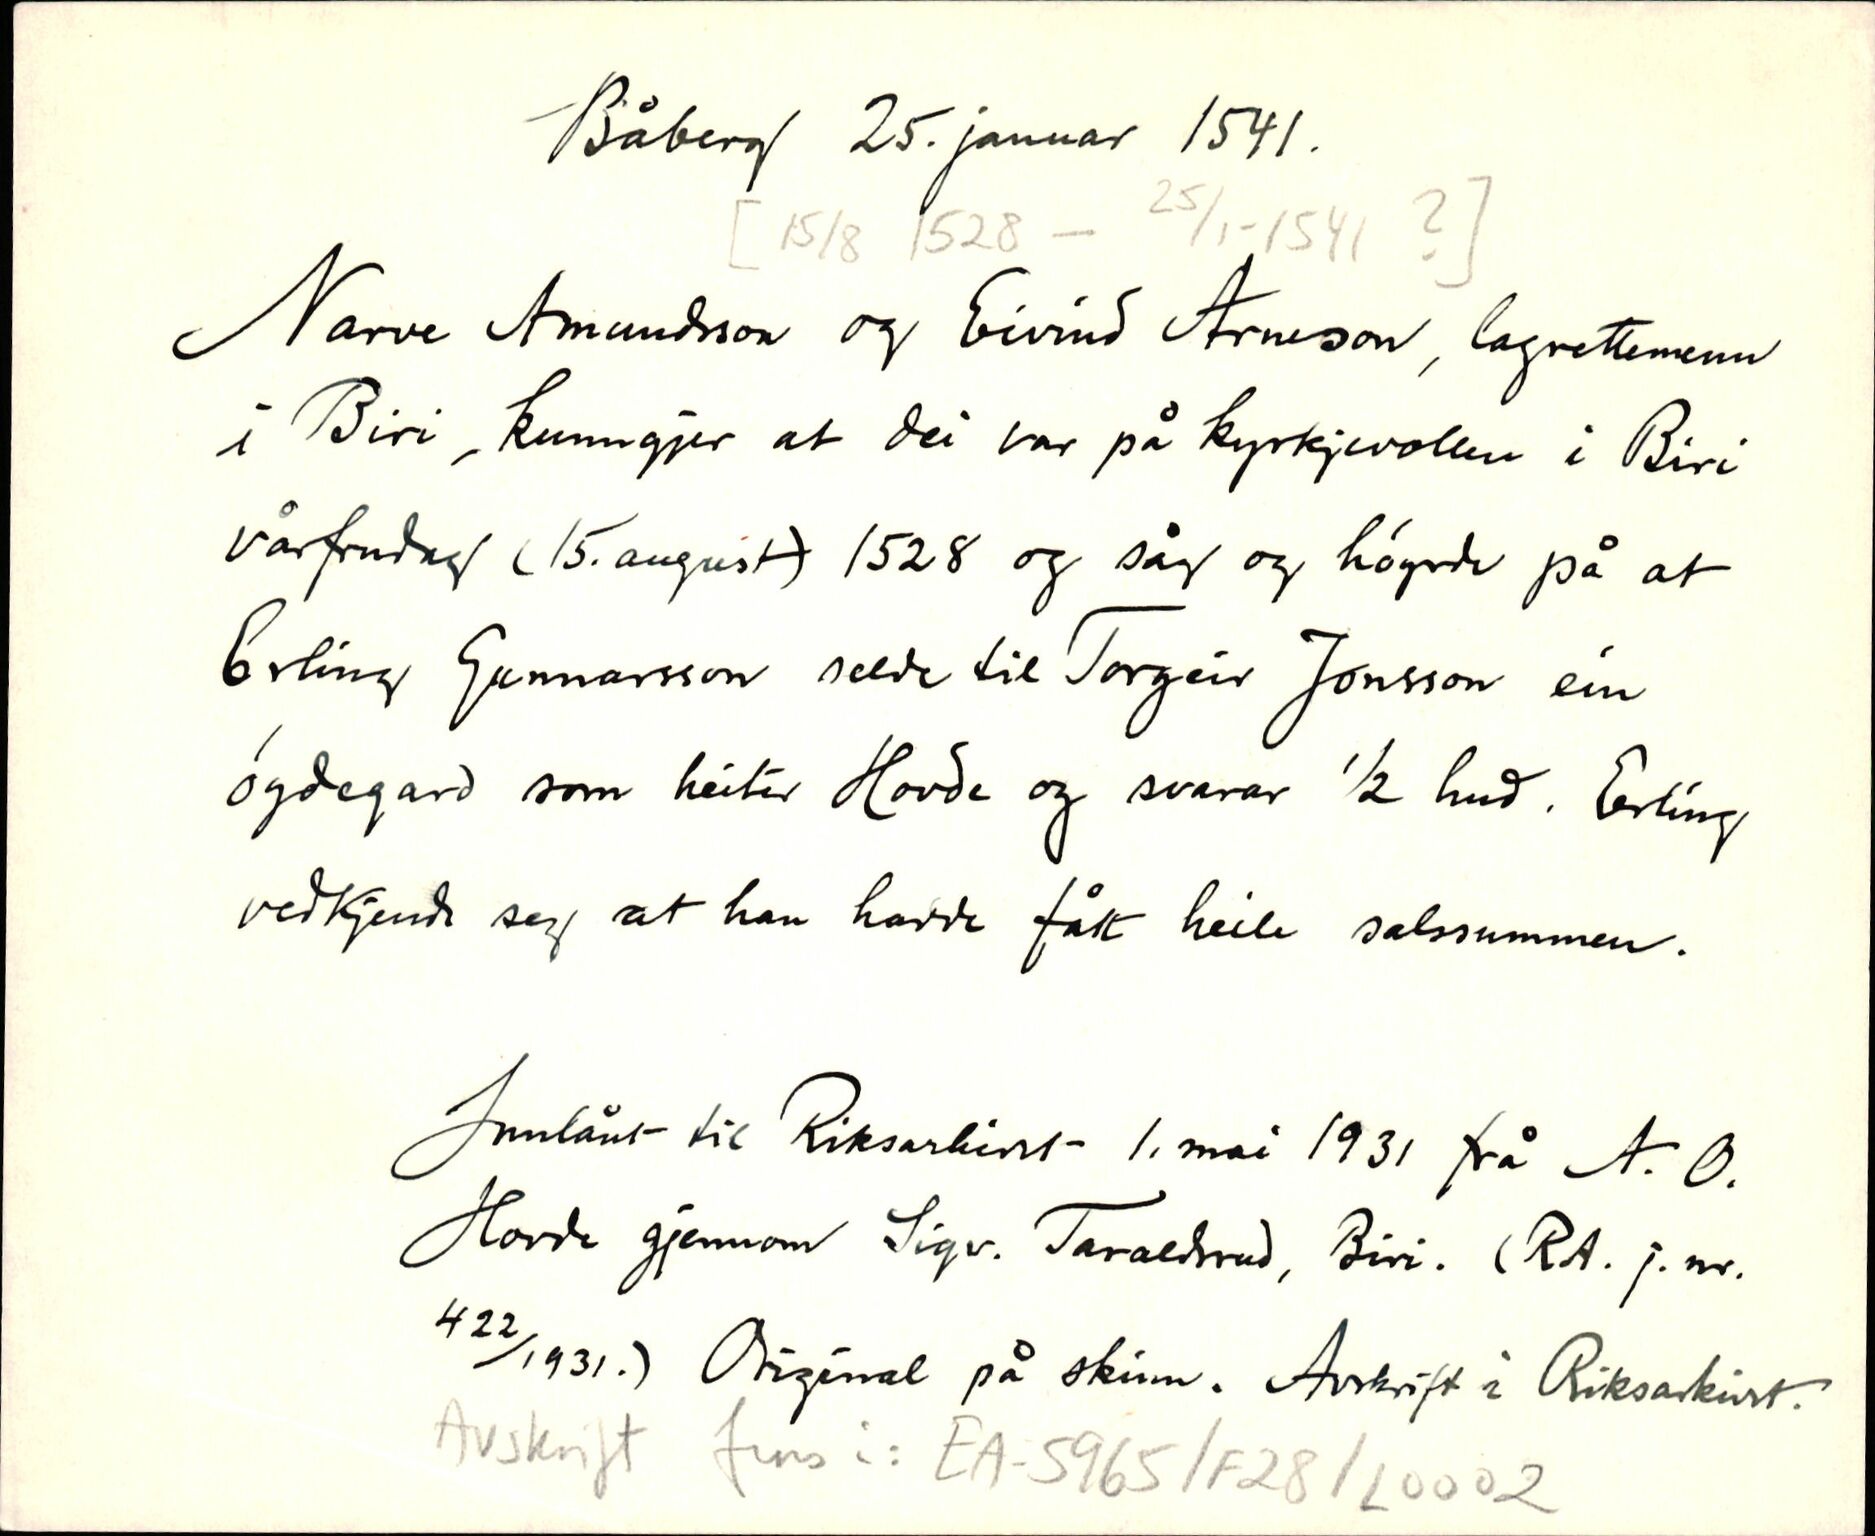 Båberg 25. januar 1541.
[15/8 1528 — 25/1-1541 ?]
Narve Amundsson og Eivind Arneson, lagrettemenn
i Biri, kunngjer at dei var på kyrkjevollen i Biri
vårfrudag (15. august) 1528 og såg og höyrde på at
Erling Gunnarsson selde til Torgeir Jonsson ein
öydegard som heiter Hovde og svarar 1/2 hud. Erling
vedkjende seg at han hadde fått heile salssummen.
Innlånt til Riksarkivet 1. mai 1931 frå A. O.
Hovde gjennom Sigv. Taraldsrud, Biri. (RA. j. nr.
422/1931.) Original på skinn. Avskrift i Riksarkivet.
Avskrift fins i: EA-5965/F28/L0002